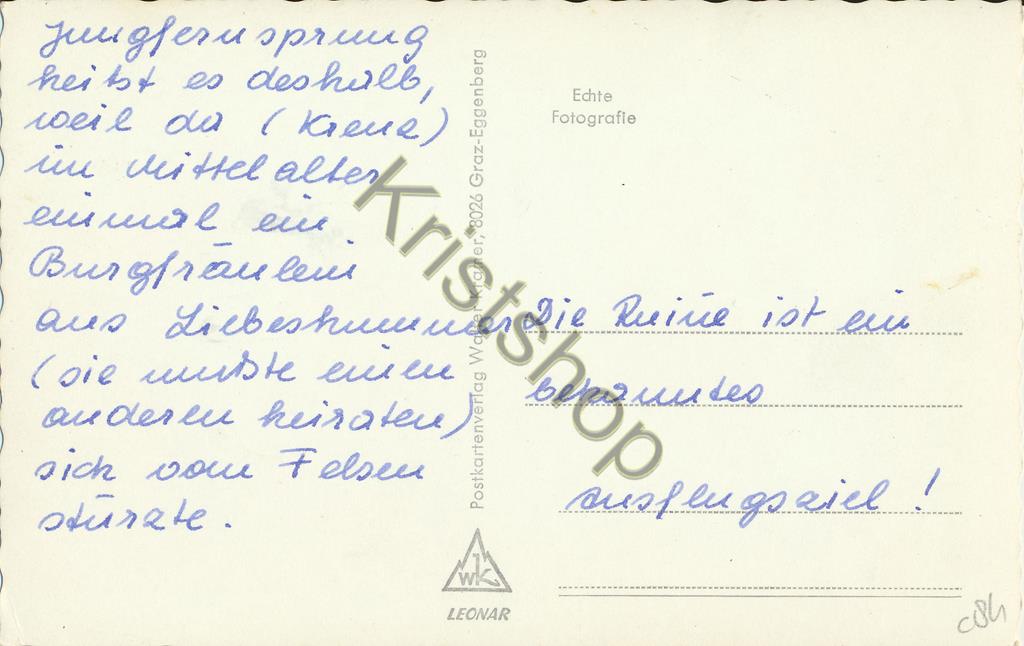 Jungfernsprung
heißt es deshalb,
weil da (Kreuz)
im Mittelalter
einmal ein
Burgfräulein
aus Liebeskummer
(sie mußte einen
anderen heiraten)
sich vom Felsen
stürzte.
Postkartenverlag Walter Kramer, 8026 Graz-Eggenberg
WK
LEONAR
Echte
Fotografie
Die Ruine ist ein
bekanntes
Ausflugsziel!
Kristshop
c84